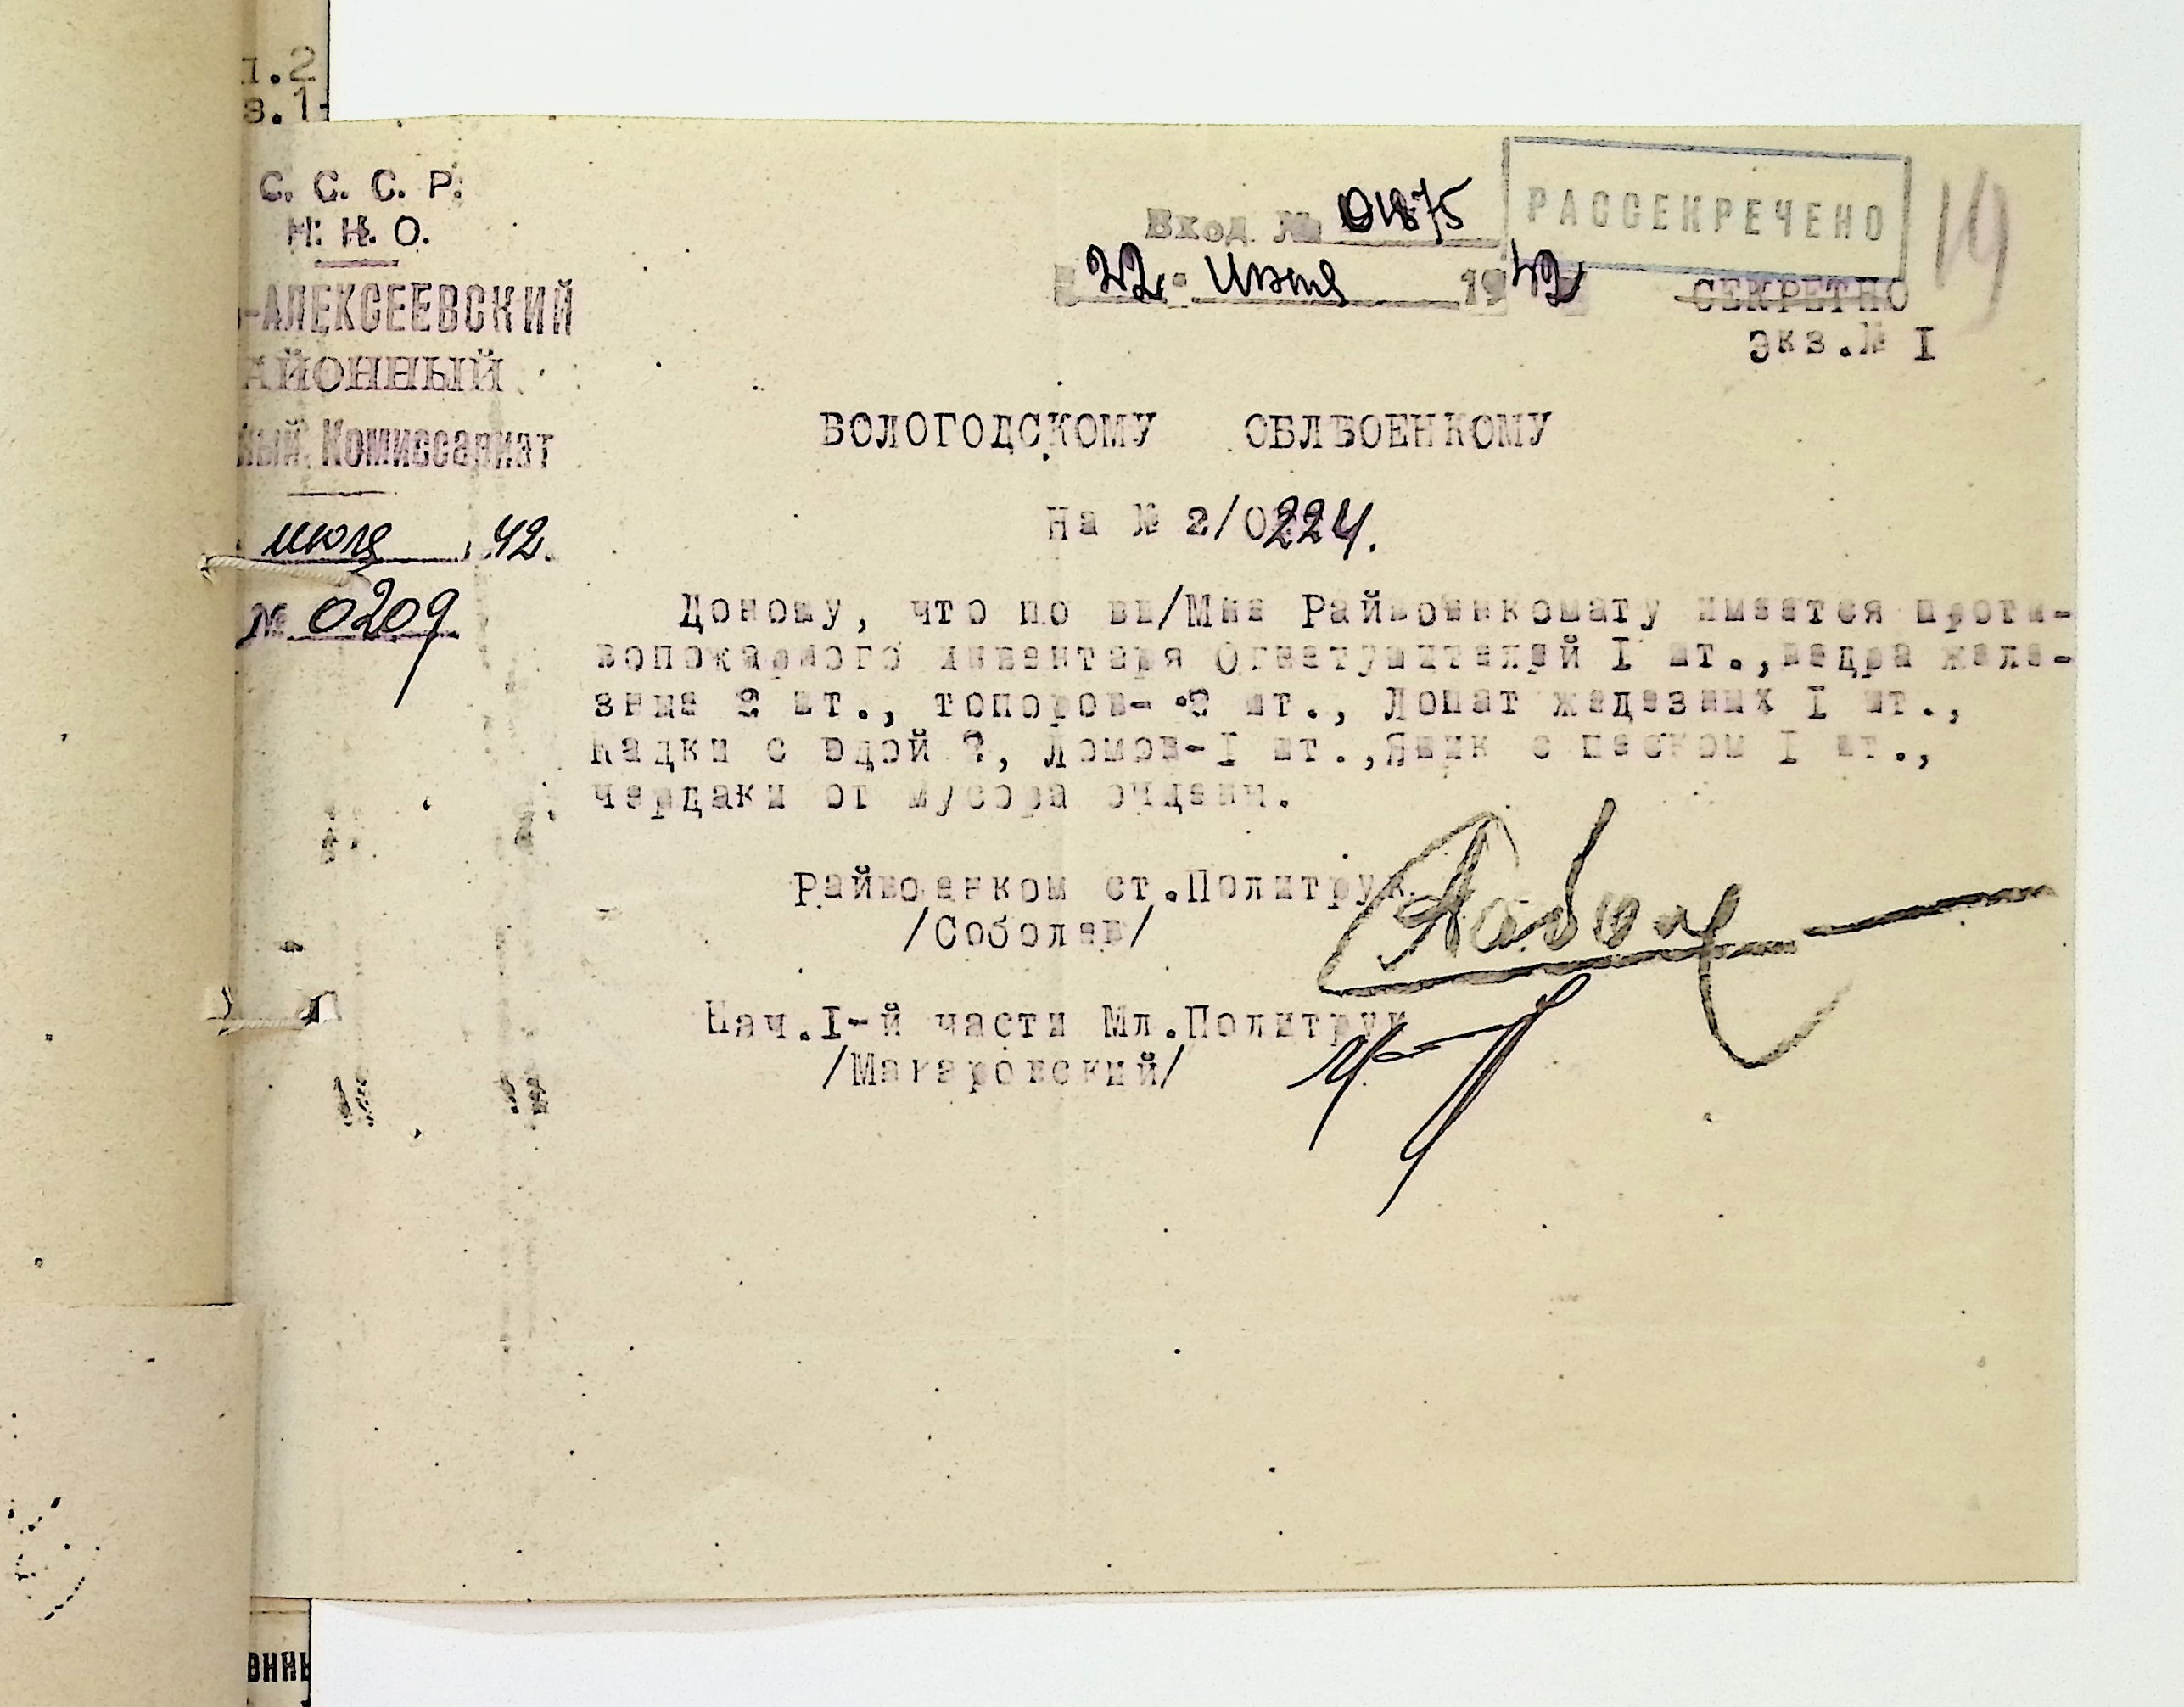 п.2
з.1
С. С. С. Р.
Н. К. О.
-АЛЕКСЕЕВСКИЙ
АЙОННЫЙ
ный Комиссариат
июля 42.
№ 0209
Вход. № 01875
22 июля 1942
РАССЕКРЕЧЕНО
19
СЕКРЕТНО
Экз.№ I
ВОЛОГОДСКОМУ ОБЛВОЕНКОМУ
На № 2/0224.
Доношу, что по вв/Мне Райвоенкомату имеется проти-
вопожарного инвентаря Огнетушителей I шт.,ведра желе-
зные 2 шт., топоров- 2 шт., Лопат железных I шт.,
Кадки с вдой ?, Ломов-I шт.,Ящик с песком I шт.,
чердаки от мусора
Райвоенком ст.Политрук
/Соболев/
Нач.I-й части Мл.Политрук
/Макаровский/
онны